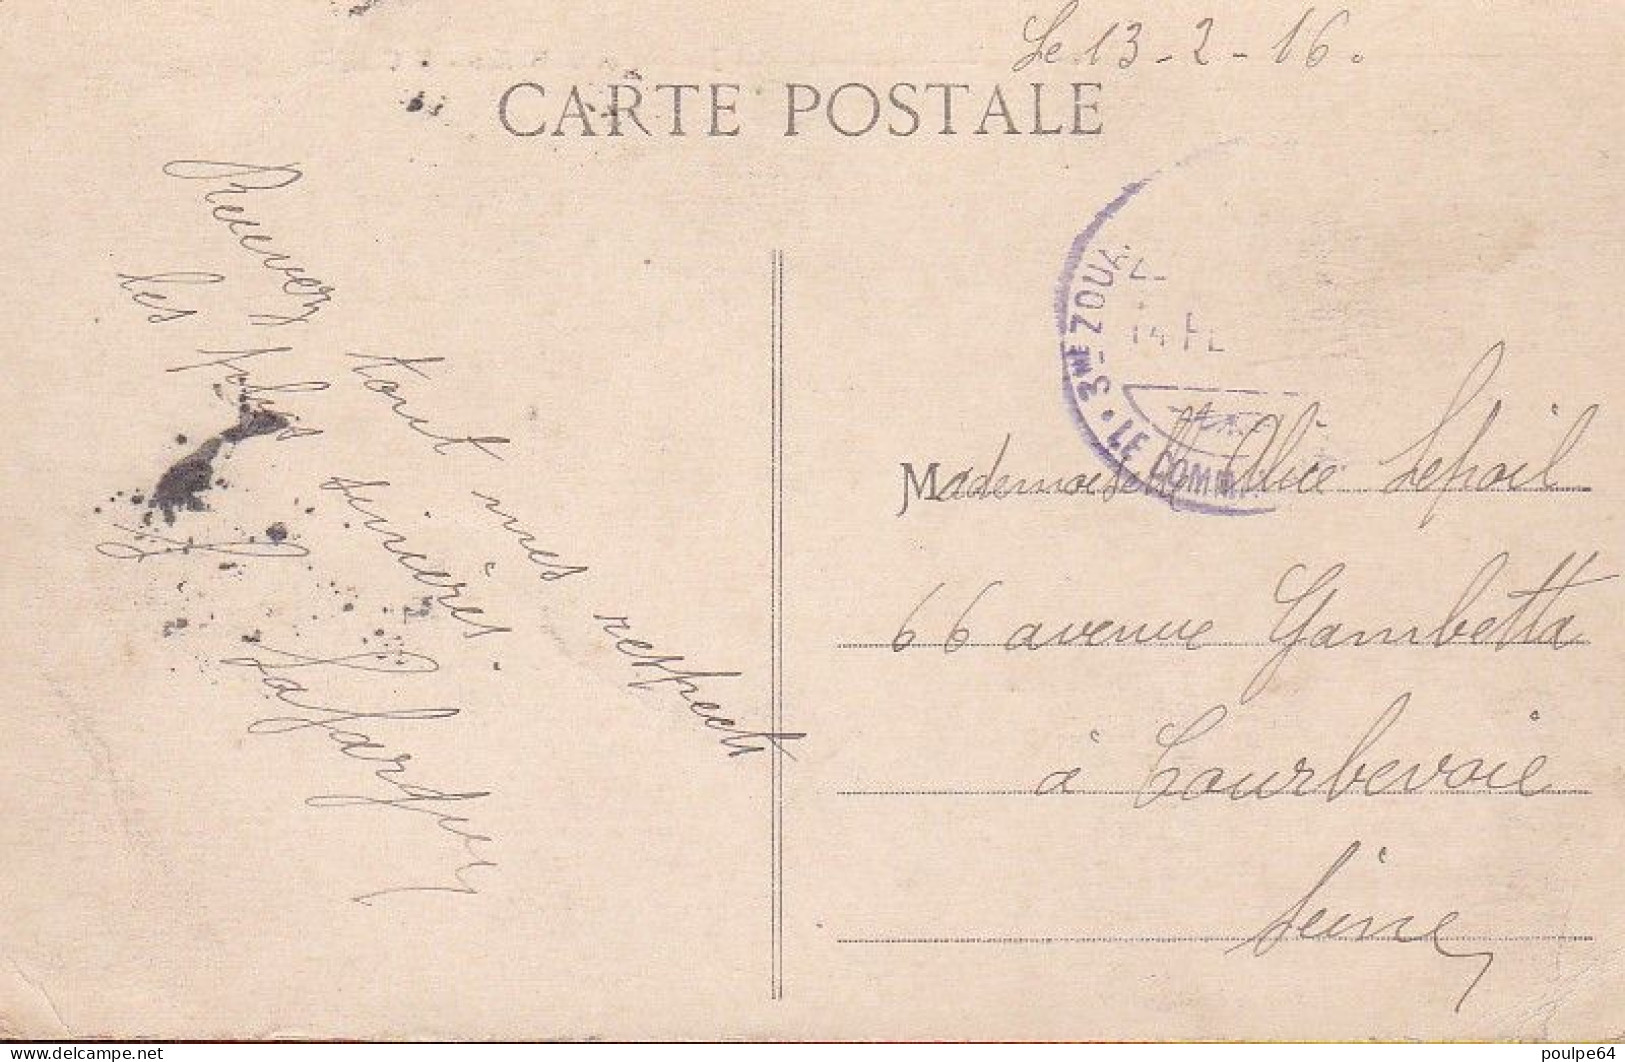 Le 13-2-16.
CARTE POSTALE
Recevez tout mes respects
les plus sincères.
3ME ZOUA
14 FE
LE COMM
Mademoiselle Alice Lepoil
66 avenue Gambetta
à Courbevoie
Seine
www.delcampe.net
poulpe64